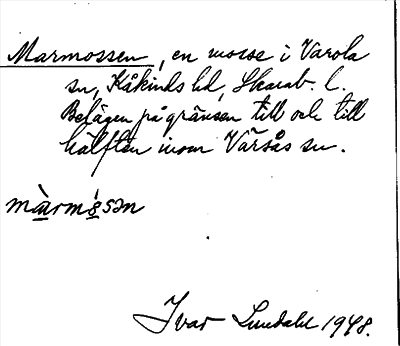 Marmossen, en mosse i Varola
sn, Kåkinds hd, Skarab. l.
Belägen på gränsen till och till
hälften inom Värsås sn.
màrmósən
Ivar Lundahl 1948.